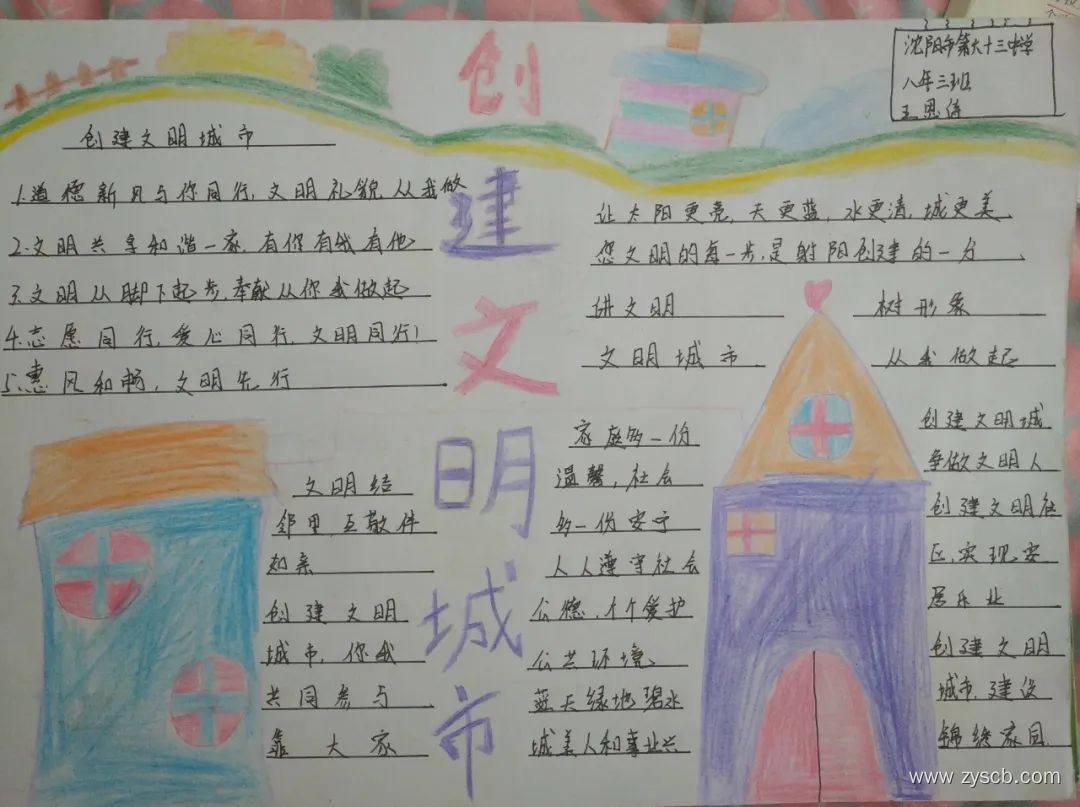 沈阳市第六十三中学
八年三班
王思
创建文明城市
创建文明城市
1.道德新风与你同行,文明礼貌,从我做
2.文明共享和谐一家,有你有我有他
3.文明从脚下起步,奉献从你我做起
4.志愿同行,爱心同行,文明同行!
5.惠风和畅,文明先行
让太阳更亮,天更蓝,水更清,城更美
您文明的每一步,是射阳创建的一分
讲文明 树形象
文明城市 从我做起
文明结
邻里互敬件
如亲
创建文明
城市,你我
共同参与
靠大家
家庭多一份
温馨,社会
多一份安宁
人人遵守社会
公德,个个爱护
公共环境
蓝天绿地碧水
城美人和事业兴
创建文明城
争做文明人
创建文明社
区,实现安
居乐业
创建文明
城市,建设
锦绣家园
www.zyscb.com